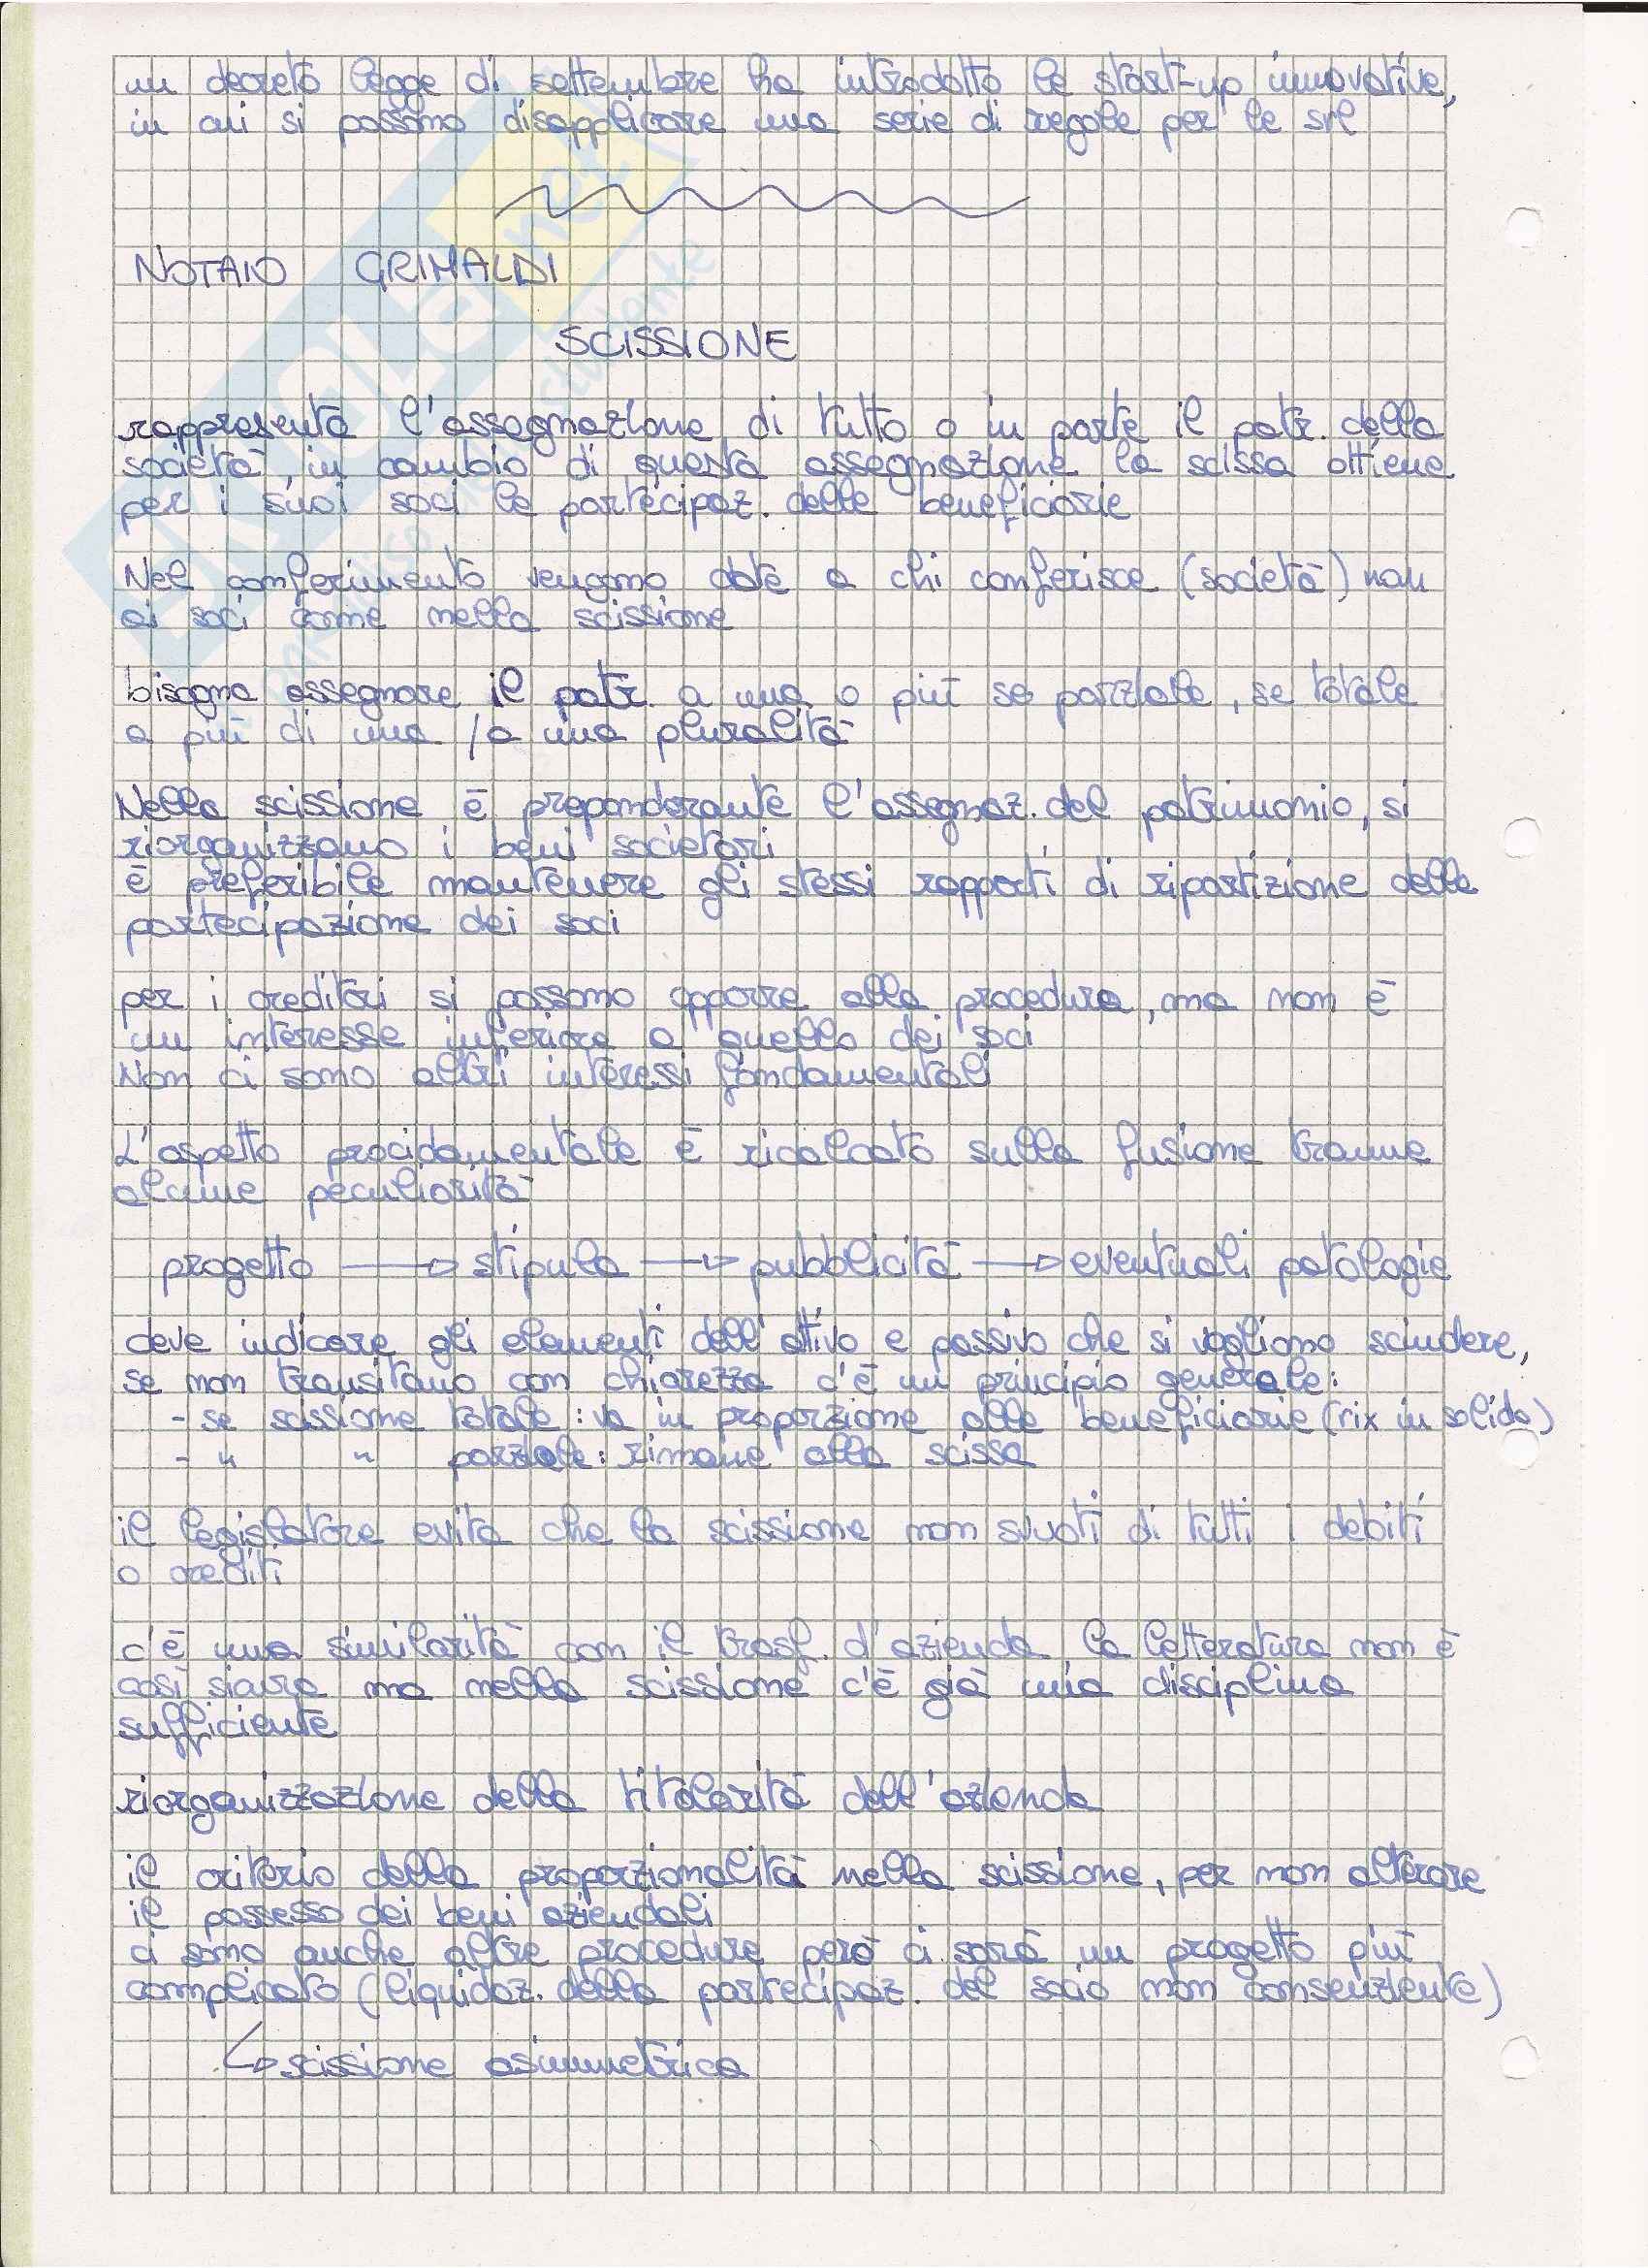 un decreto legge di settembre ha introdotto le start-up innovative,
in cui si possono disapplicare una serie di regole per le srl
NOTAIO GRIMALDI
SCISSIONE
rappresenta l'assegnazione di tutto o in parte il patr. della
società, in cambio di questa assegnazione la scissa ottiene
per i suoi soci le partecipaz. delle beneficiarie
Nel conferimento vengono date a chi conferisce (società) non
ai soci come nella scissione
bisogna assegnare il patr. a una o più se parziale, se totale
a più di una /a una pluralità
Nella scissione è preponderante l'assegnaz. del patrimonio, si
riorganizzano i beni societari
è preferibile mantenere gli stessi rapporti di ripartizione della
partecipazione dei soci
per i creditori si possono opporre alla procedura, ma non è
un interesse inferiore a quello dei soci
Non ci sono altri interessi fondamentali
L'aspetto procidamentale è ricalcato sulla fusione tranne
alcune peculiarità
progetto → stipula → pubblicità → eventuali patologie
deve indicare gli elementi dell'attivo e passivo che si vogliono scindere,
se non transitano con chiarezza c'è un principio generale:
- se scissione totale: va in proporzione alle beneficiarie (rix in solido)
- " " parziale: rimane alla scissa
il legislatore evita che la scissione non svuoti di tutti i debiti
o crediti
c'è una similarità con il trasf. d'azienda la letteratura non è
così sicura ma nella scissione c'è già una disciplina
sufficiente
riorganizzazione della titolarità dell'azienda
il criterio della proporzionalità nella scissione, per non alterare
il possesso dei beni aziendali
ci sono anche altre procedure però ci sarà un progetto più
complicato (liquidaz. della partecipaz. del socio non consenziente)
↳ scissione asimmetrica